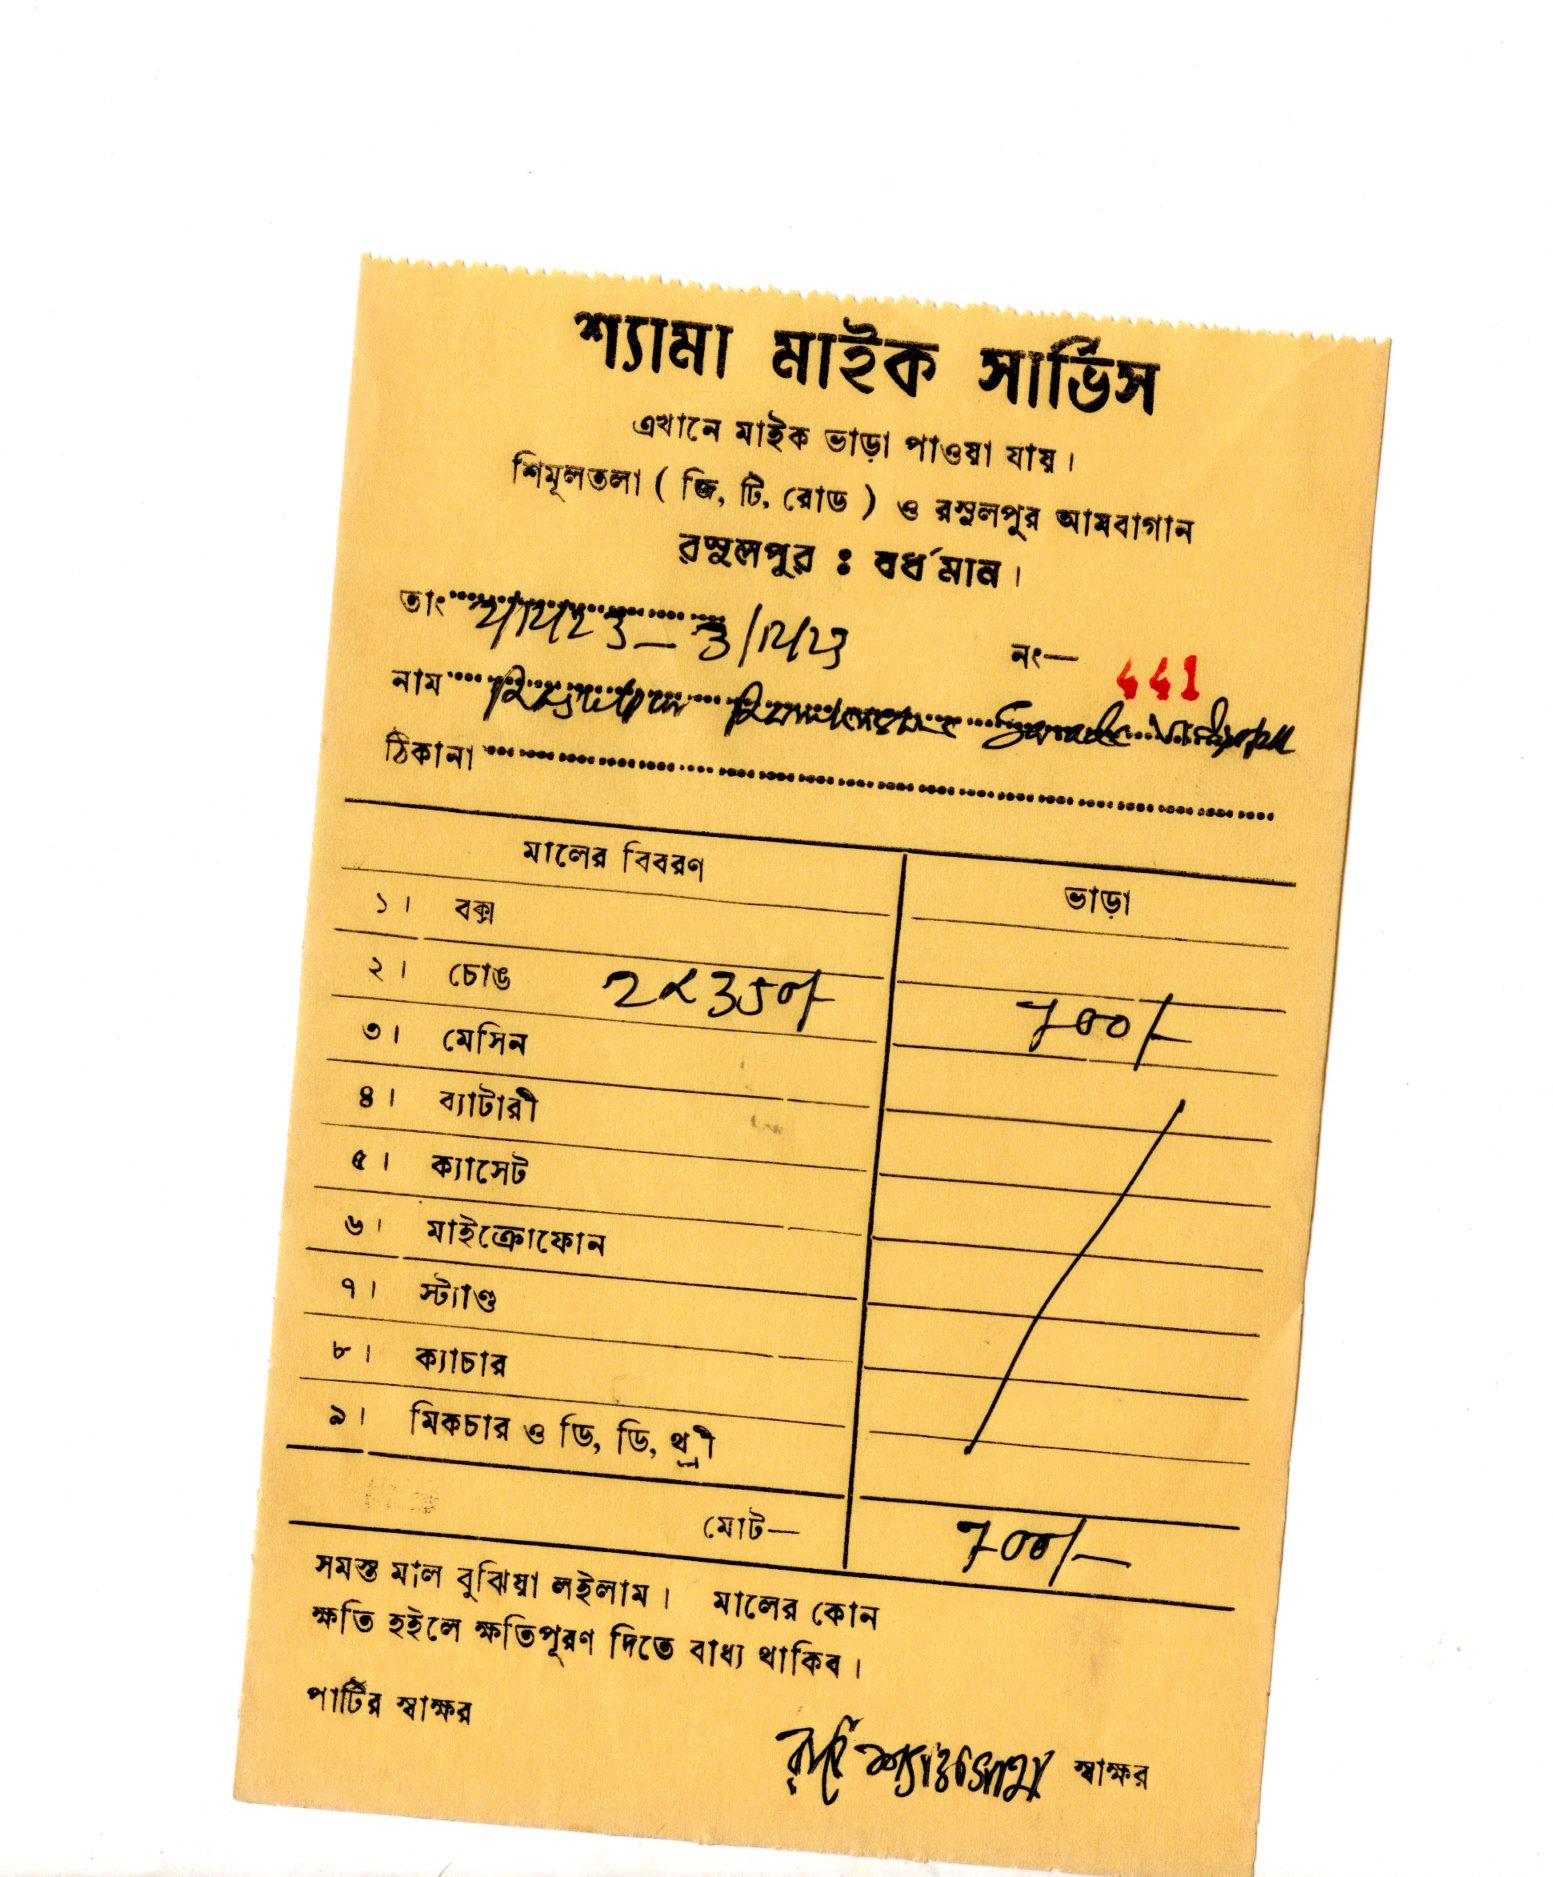 শ্যামা মাইক সার্ভিস
এখানে মাইক ভাড়া পাওয়া যায়।
শিমূলতলা ( জি, টি, রোড ) ও রসুলপুর আমবাগান
রসুলপুর : বর্ধমান।
তাং
নং— 441
নাম
ঠিকানা
মালের বিবরণ ভাড়া
১। বক্স
২। চোঙ 2 x 350/- 700/-
৩। মেসিন
৪। ব্যাটারী
৫। ক্যাসেট
৬। মাইক্রোফোন
৭। স্ট্যাণ্ড
৮। ক্যাচার
৯। মিকচার ও ডি, ডি, থ্রী
মোট— 700/-
সমস্ত মাল বুঝিয়া লইলাম। মালের কোন
ক্ষতি হইলে ক্ষতিপূরণ দিতে বাধ্য থাকিব।
পার্টির স্বাক্ষর
স্বাক্ষর